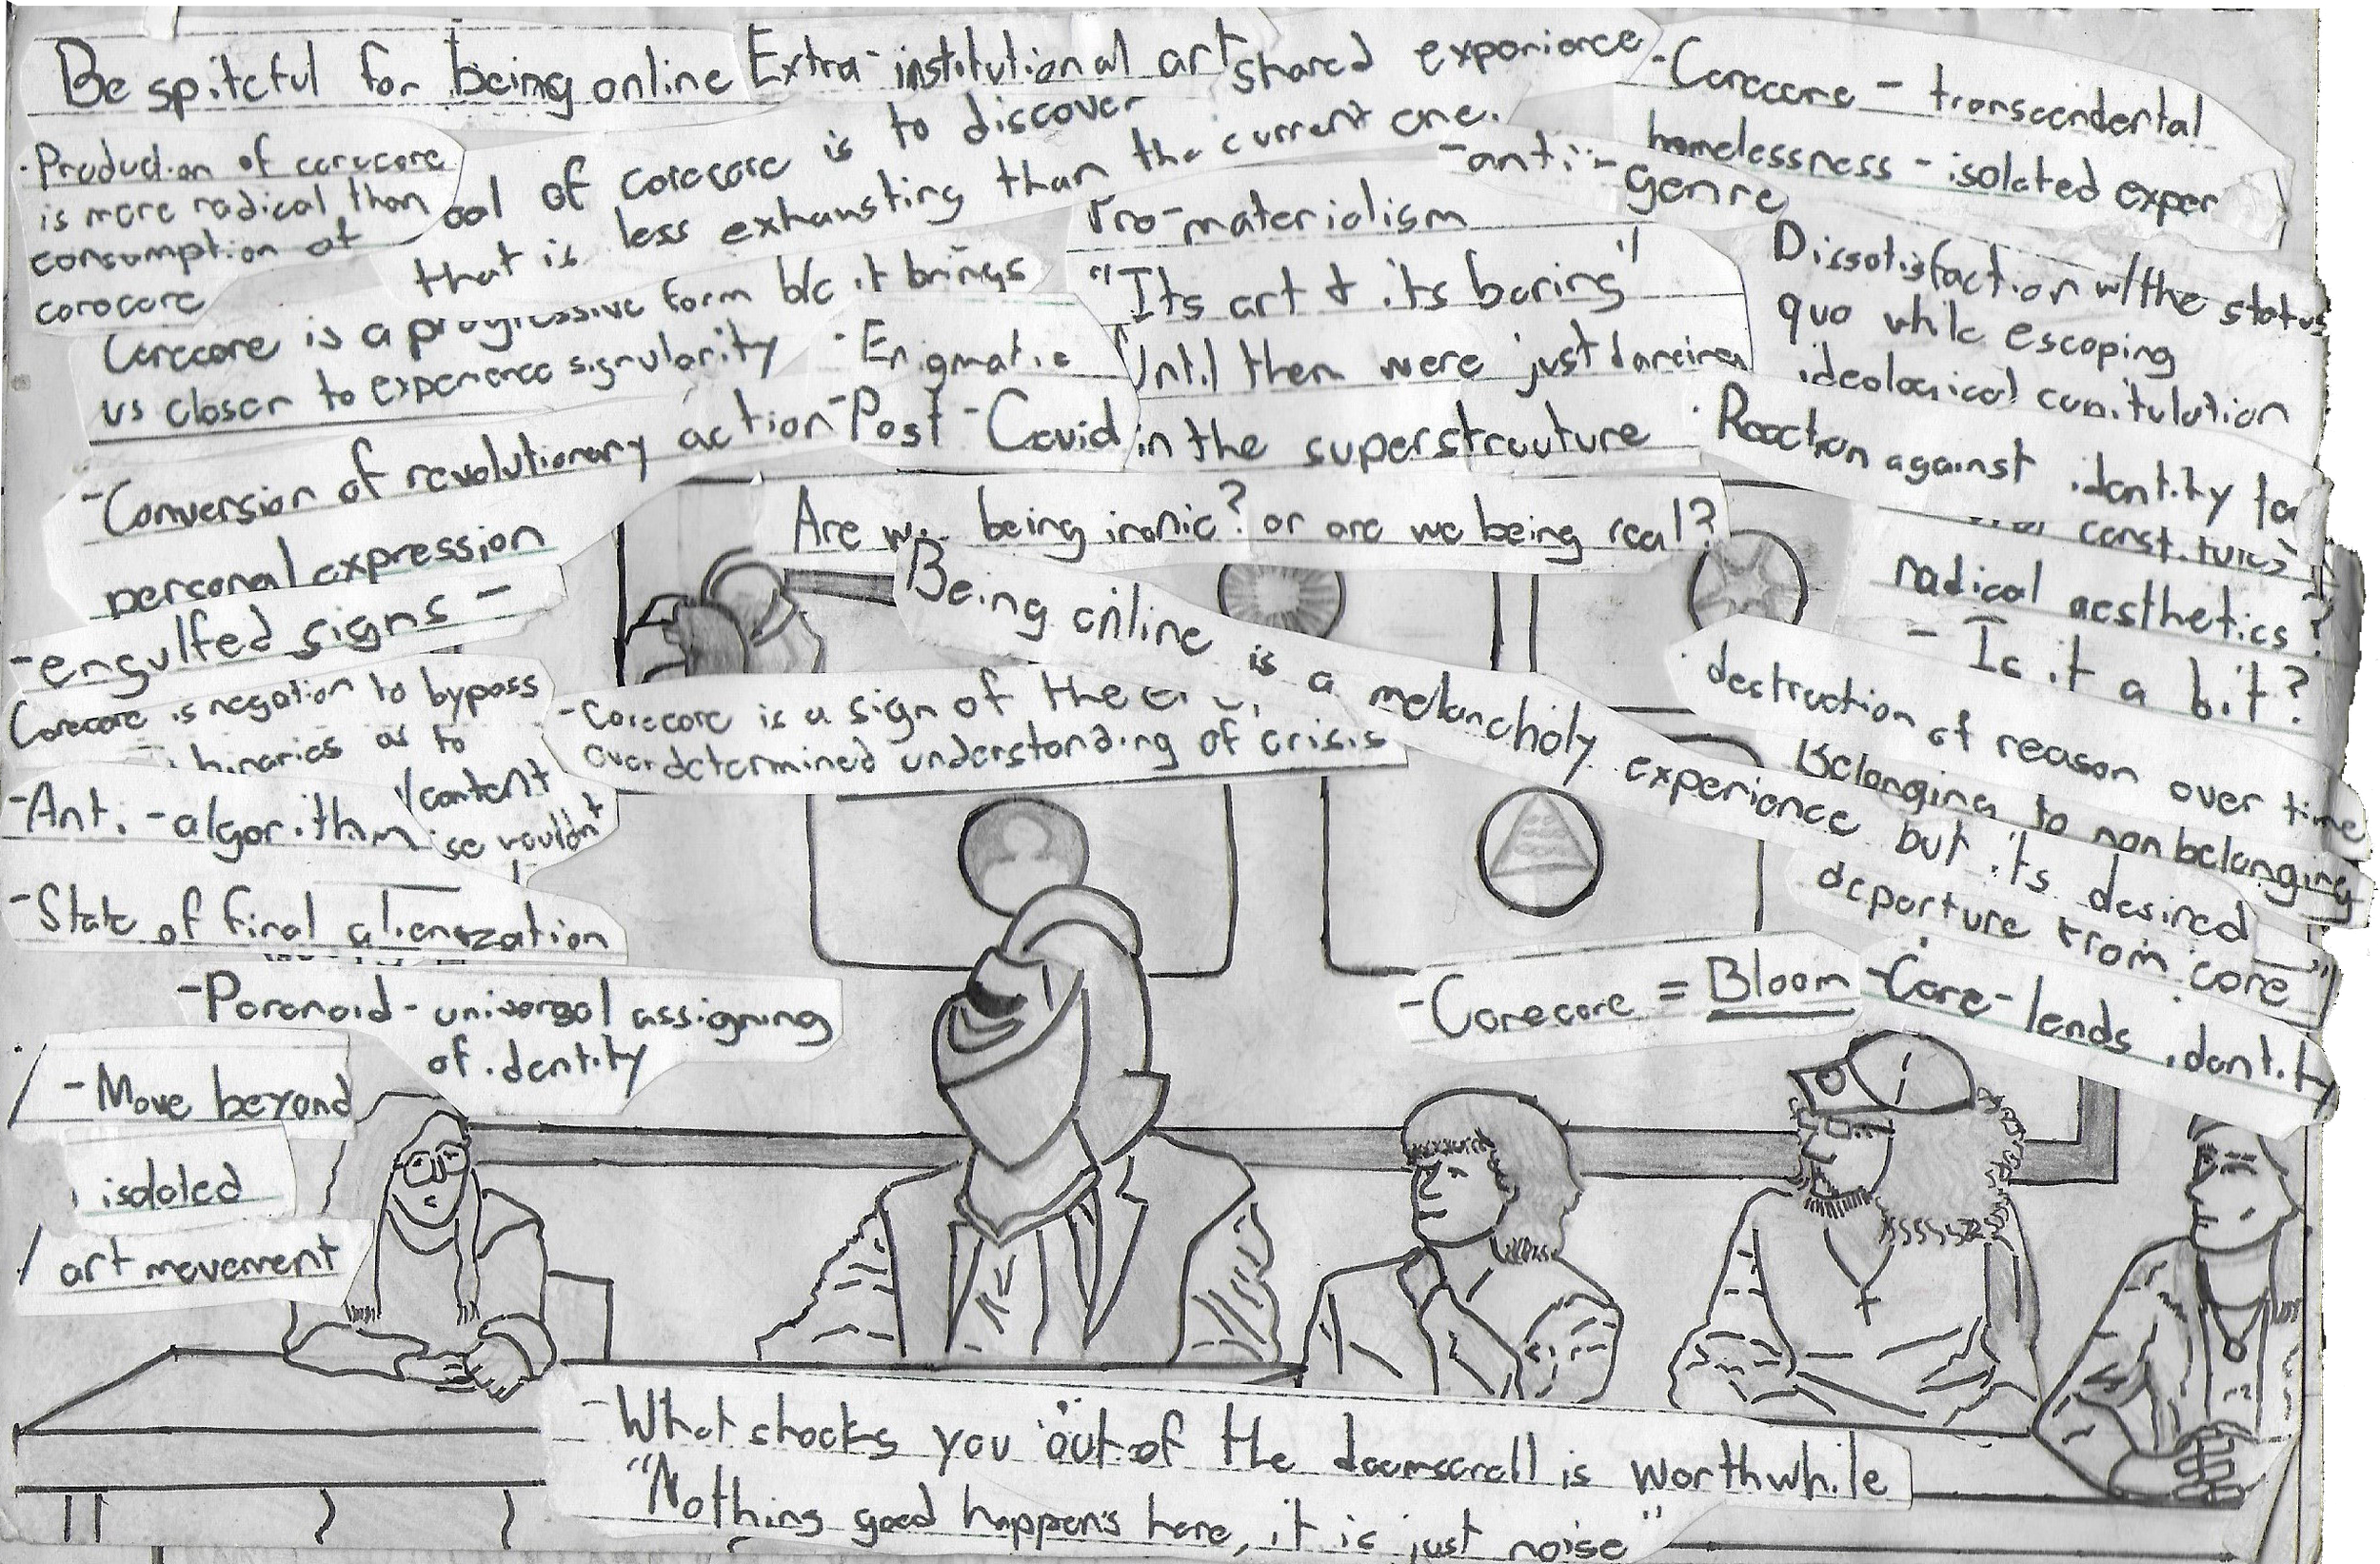 Be spiteful for being online
Extra-institutional art
shared experience
-Corecore - transcendental
homelessness - isolated exper
·Production of corecore
is more radical than
consumption of
corecore
oal of corecore is to discover
that is less exhausting than the current one.
-anti-genre
Pro-materialism
"Its art & its boring"
Until then were just dancing
in the superstructure
Dissatisfaction w/the status
quo while escaping
ideological
Corecore is a progressive form b/c it brings
us closer to experience singularity
·Enigmatic
-Post-Covid
·Reaction against identity
-Conversion of revolutionary action
personal expression
Are we being ironic? or are we being real?
radical aesthetics?
- Is it a bit?
-engulfed signs -
Being online is a melancholy experience but its desired
·destruction of reason over time
Belonging to nonbelonging
departure from "core"
Corecore is negation to bypass
binaries as to
/content
-corecore is a sign of the
overdetermined understanding of crisis
-Anti-algorithm
wouldnt
-State of final alienization
-Paranoid - universal assigning
of identity
-Corecore = Bloom
-Core - lends identity
/ -Move beyond
isolated
/ art movement
-What shocks you out of the doomscroll is worthwhile
"Nothing good happens here, it is just noise"